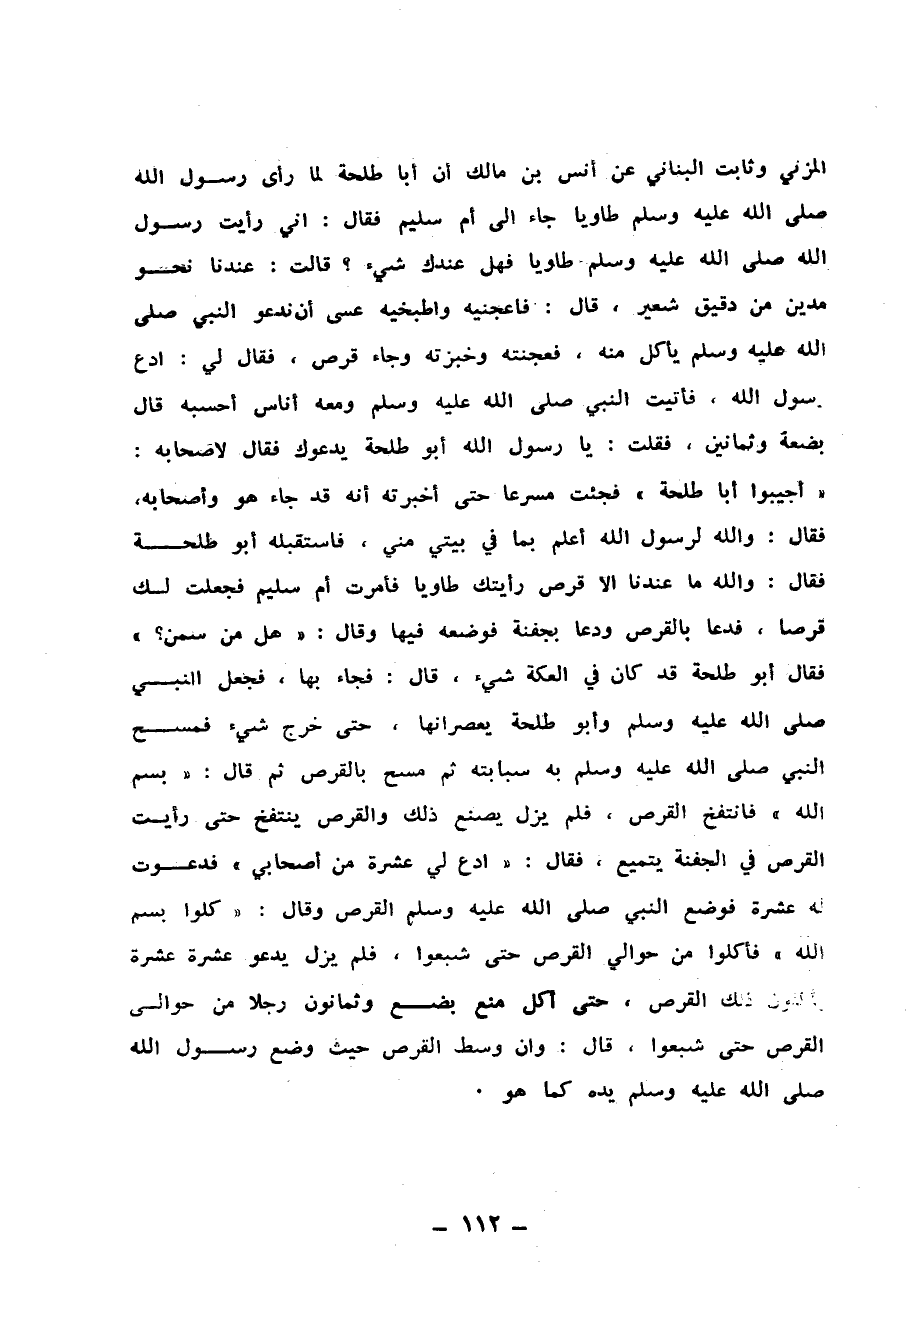 المزني وثابت البناني عن أنس بن مالك أن أبا طلحة لما رأى رســول الله
صلى الله عليه وسلم طاويا جاء الى أم سليم فقال : اني رأيت رســول
الله صلى الله عليه وسلم طاويا فهل عندك شيء ؟ قالت : عندنا نحــو
مدين من دقيق شعير ، قال : فاعجنيه واطبخيه عسى أن ندعو النبي صلى
الله عليه وسلم يأكل منه ، فعجنته وخبزته وجاء قرص ، فقال لي : ادع
رسول الله ، فأتيت النبي صلى الله عليه وسلم ومعه أناس أحسبه قال
بضعة وثمانين ، فقلت : يا رسول الله أبو طلحة يدعوك فقال لاصحابه :
« أجيبوا أبا طلحة » فجئت مسرعا حتى أخبرته أنه قد جاء هو وأصحابه،
فقال : والله لرسول الله أعلم بما في بيتي مني ، فاستقبله أبو طلحـــة
فقال : والله ما عندنا الا قرص رأيتك طاويا فأمرت أم سليم فجعلت لــك
قرصا ، فدعا بالقرص ودعا بجفنة فوضعه فيها وقال : « هل من سمن؟ »
فقال أبو طلحة قد كان في العكة شيء ، قال : فجاء بها ، فجعل النبــي
صلى الله عليه وسلم وأبو طلحة يعصرانها ، حتى خرج شيء فمســـح
النبي صلى الله عليه وسلم به سبابته ثم مسح بالقرص ثم قال : « بسم
الله » فانتفخ القرص ، فلم يزل يصنع ذلك والقرص ينتفخ حتى رأيــت
القرص في الجفنة يتميع ، فقال : « ادع لي عشرة من أصحابي » فدعـــوت
له عشرة فوضع النبي صلى الله عليه وسلم القرص وقال : « كلوا بسم
الله » فأكلوا من حوالي القرص حتى شبعوا ، فلم يزل يدعو عشرة عشرة
يأكلون ذلك القرص ، حتى أكل منع بضـــع وثمانون رجلا من حوالــى
القرص حتى شبعوا ، قال : وان وسط القرص حيث وضع رســـول الله
صلى الله عليه وسلم يده كما هو .
– ١١٢ –